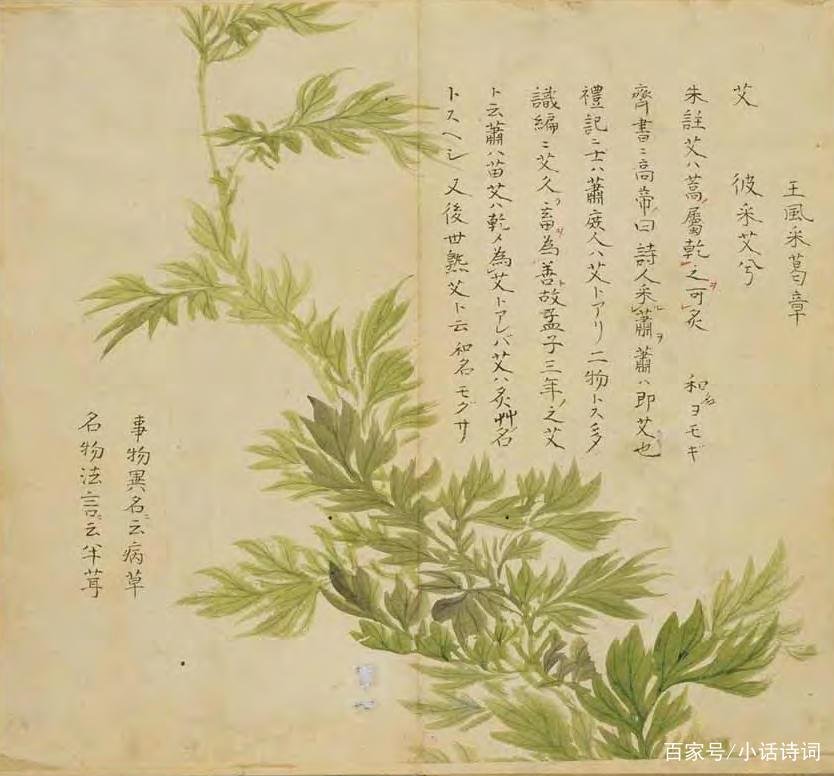 王風采葛章
艾　彼采艾兮
朱註艾ハ蒿屬乾之可炙　和名ヨモギ
齊書ニ高帝曰詩人采蕭蕭ハ即艾也
禮記ニ士ハ蕭庶人ハ艾トアリ二物トス多
識編ニ艾久畜為善故孟子三年之艾
ト云蕭ハ苗艾ハ乾メ為艾トアレバ艾ハ炙艸名
トスヘシ又後世熟艾ト云和名モグサ
事物異名ニ云病草
名物法言ニ云半茸
百家号/小话诗词